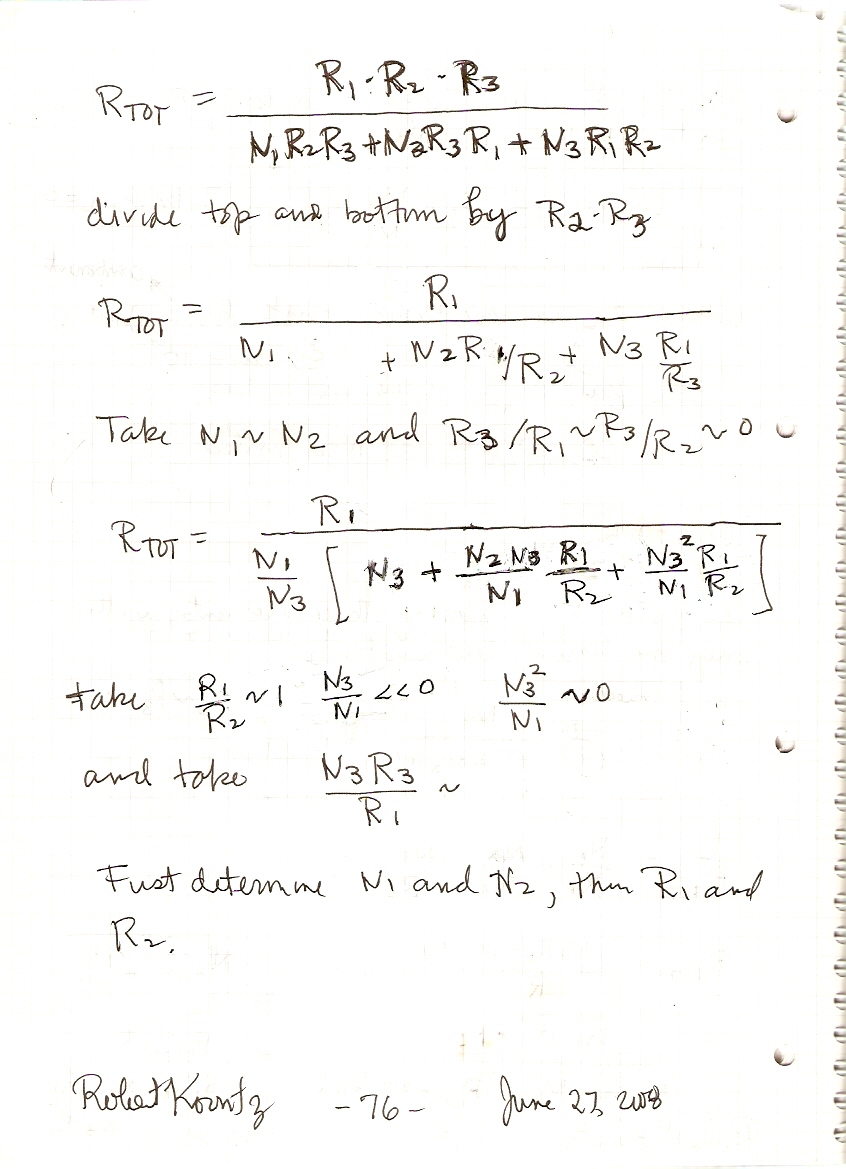 R_TOT = R1·R2·R3 / (N1R2R3 + N2R3R1 + N3R1R2)
divide top and bottom by R2·R3
R_TOT = R1 / (N1 + N2R1/R2 + N3 R1/R3)
Take N1 ~ N2 and R3/R1 ~ R3/R2 ~ 0
R_TOT = R1 / (N1/N3 [N3 + N2N3/N1 R1/R2 + N3²/N1 R1/R2])
take R1/R2 ~ 1 N3/N1 << 0 N3²/N1 ~ 0
and take N3R3/R1 ~
First determine N1 and N2, then R1 and
R2.
Robert Koontz - 76 - June 27, 2008